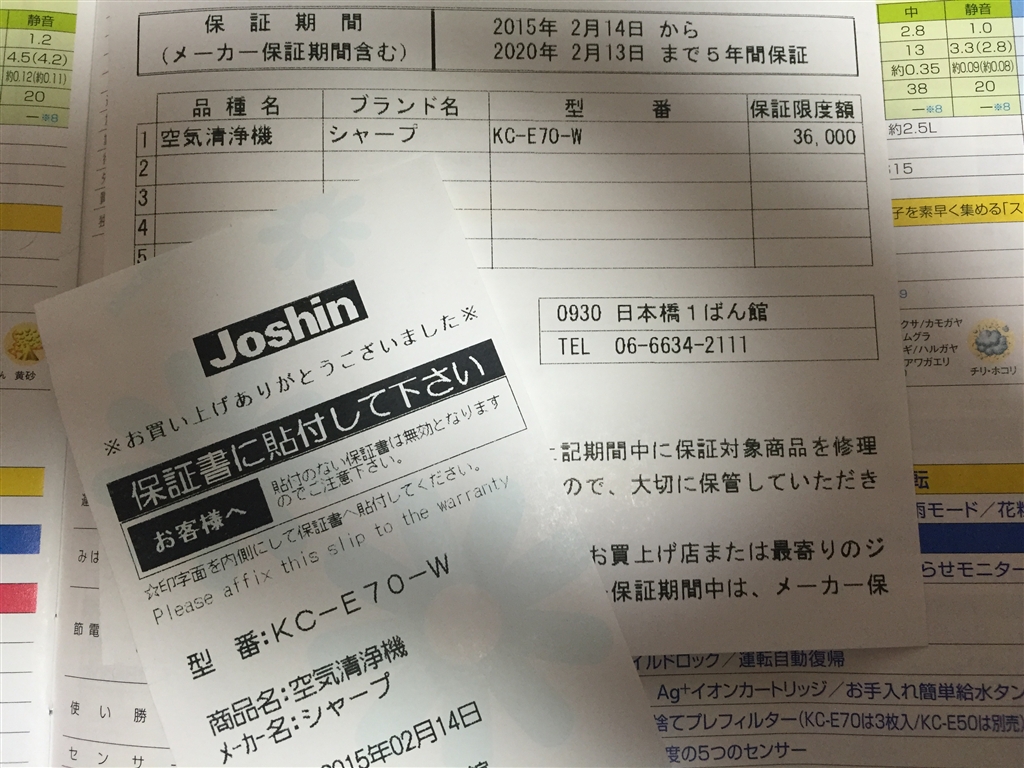 保証期間
(メーカー保証期間含む)
2015年 2月14日 から
2020年 2月13日 まで5年間保証
品種名 ブランド名 型番 保証限度額
1 空気清浄機 シャープ KC-E70-W 36,000
2
3
4
5
0930 日本橋1ばん館
TEL 06-6634-2111
記期間中に保証対象商品を修理
ので、大切に保管していただき
お買上げ店または最寄りのジ
保証期間中は、メーカー保
Joshin
※お買い上げありがとうございました※
保証書に貼付して下さい
お客様へ
貼付のない保証書は無効となります
のでご注意下さい。
☆印字面を内側にして保証書へ貼付してください。
Please affix this slip to the warranty
型 番:KC-E70-W
商品名:空気清浄機
メーカー名:シャープ
2015年02月14日
静音
1.2
4.5(4.2)
約0.12(約0.11)
20
—※8
黄砂
みは
節電
使い勝
センサ
中 静音
2.8 1.0
13 3.3(2.8)
約0.35 約0.09(約0.08)
38 20
—※8 —※8
約2.5L
15
子を素早く集める「ス
クサ/カモガヤ
ムグラ
ギ/ハルガヤ
アワガエリ
チリ・ホコリ
転
モード/花粉
らせモニター
イルドロック/運転自動復帰
Ag+イオンカートリッジ/お手入れ簡単給水タン
捨てプレフィルター(KC-E70は3枚入/KC-E50は別売
度の5つのセンサー